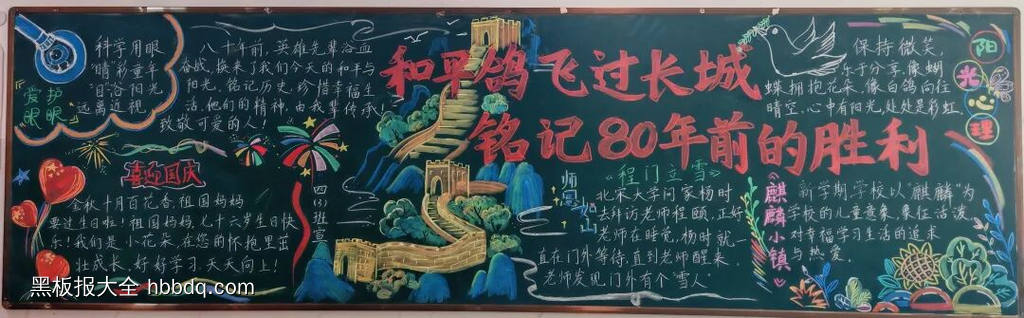 科学用眼
"睛"彩童年
目浴阳光
远离近视
爱护
眼眼
八十年前,英雄先辈浴血
奋战,换来了我们今天的和平与
阳光。铭记历史,珍惜幸福生
活,他们的精神,由我辈传承!
致敬可爱的人们
和平鸽飞过长城
铭记80年前的胜利
保持微笑,
乐于分享,像蝴
蝶拥抱花朵,像白鸽向往
晴空,心中有阳光,处处是彩虹。
阳
光
心
理
喜迎国庆
金秋十月百花香,祖国妈妈
要过生日啦!祖国妈妈,七十六岁生日快
乐!我们是小花朵,在您的怀抱里茁
壮成长,好好学习,天天向上!
四(3)班宣
师恩如山
《程门立雪》
北宋大学问家杨时
去拜访老师程颐,正好
老师在睡觉,杨时就一
直在门外等待,直到老师醒来,
老师发现门外有个"雪人"
《麒麟小镇》
新学期学校以"麒麟"为
学校的儿童意象,象征活泼
对幸福学习生活的追求
与热爱。
黑板报大全 hbbdq.com